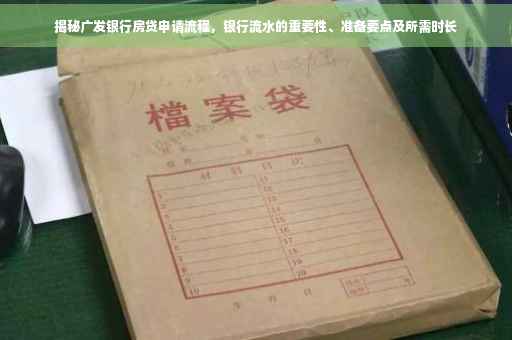 揭秘广发银行房贷申请流程，银行流水的重要性、准备要点及所需时长
檔案袋
材料目次
1 11
2 12
3 13
4 14
5 15
6 16
7 17
8 18
9 19
10 20
年 月 日